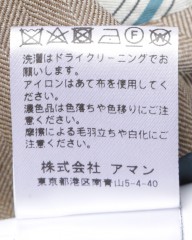 洗濯はドライクリーニングでお
願いします。
アイロンはあて布を使用してく
ださい。
濃色品は色落ちや色移りにご注
意ください。
摩擦による毛羽立ちや白化にご
注意ください。
株式会社 アマン
東京都港区南青山5-4-40